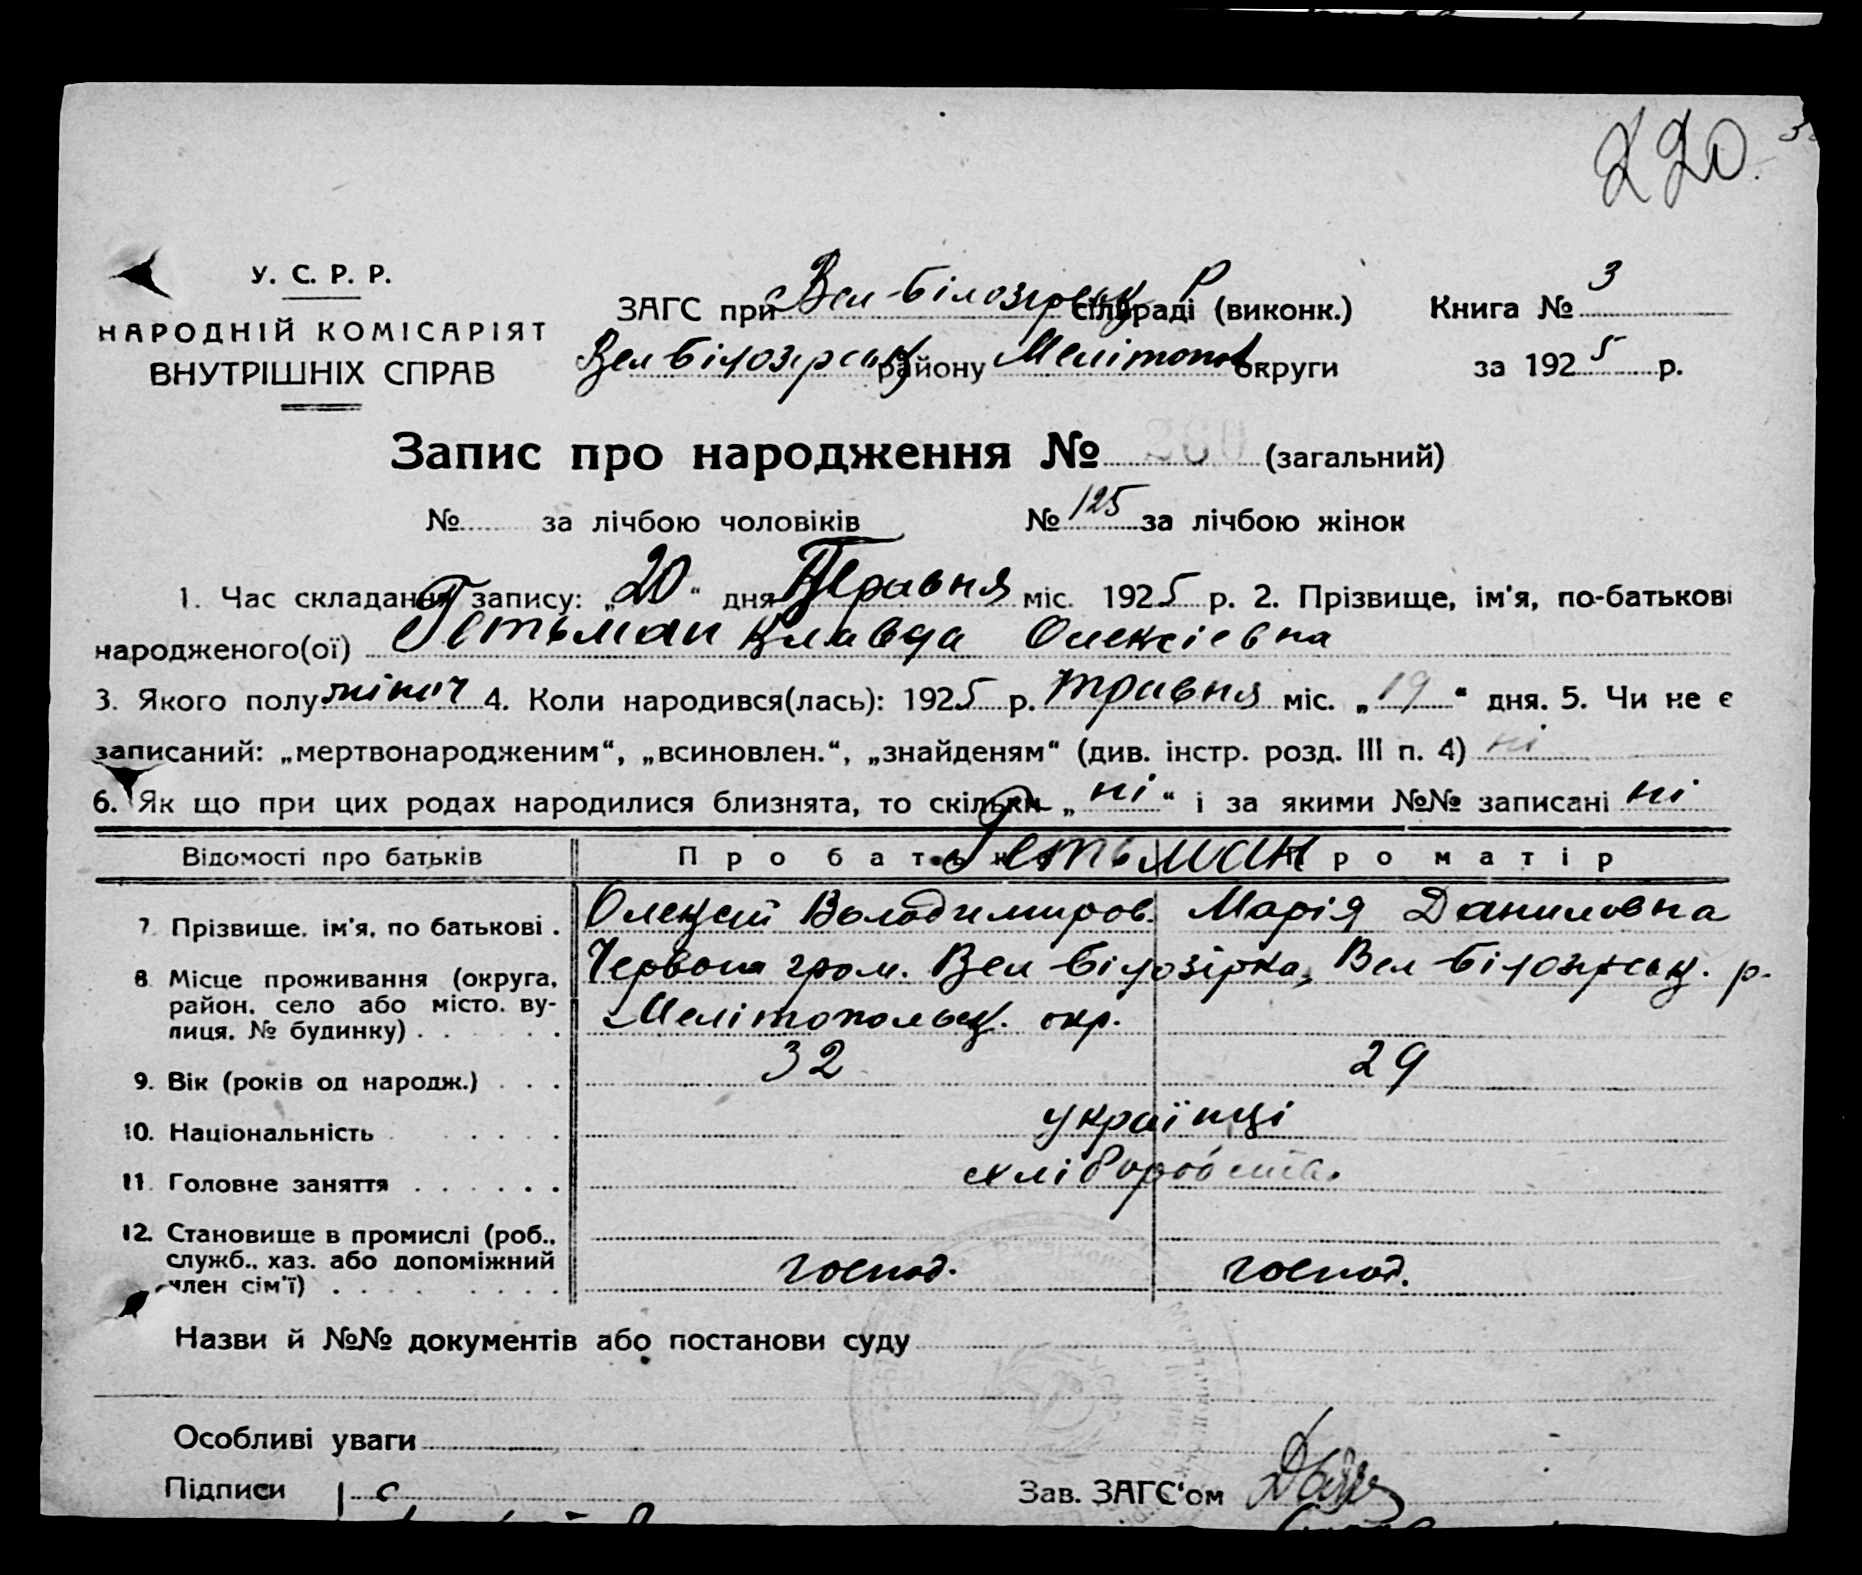 220.
У. С. Р. Р.
НАРОДНІЙ КОМІСАРІЯТ
ВНУТРІШНІХ СПРАВ
ЗАГС при Вел-Білозірськ Р сільраді (виконк.)
Вел Білозірськ району Мелітопол округи
Книга № 3
за 1925 р.
Запис про народження № (загальний)
№ за лічбою чоловіків № 125 за лічбою жінок
1. Час складання запису: „20“ дня Травня міс. 1925 р. 2. Прізвище, ім'я, по-батькові
народженого(ої) Гетьман Клавда Олексієвна
3. Якого полу жіноч 4. Коли народився(лась): 1925 р. травня міс. „19“ дня. 5. Чи не є
записаний: „мертвонародженим“, „всиновлен.“, „знайденям“ (див. інстр. розд. III п. 4) ні
6. Як що при цих родах народилися близнята, то скільки „ні“ і за якими №№ записані ні
Відомості про батьків Про батька Про матір
Гетьман
7. Прізвище, ім'я, по батькові . Олексій Володимиров. Марія Даниловна
8. Місце проживання (округа, район, село або місто, ву-лиця, № будинку) . . . . Червона гром. Вел Білозірка, Вел Білозірськ. р.
Мелітопольськ. окр.
9. Вік (років од народж.) . . . 32 29
10. Національність . . . . . українці
11. Головне заняття . . . . . . хліборобства.
12. Становище в промислі (роб., служб., хаз. або допоміжний член сім'ї) . . . . . . . . господ. господ.
Назви й №№ документів або постанови суду
Особливі уваги
Підписи
Зав. ЗАГС'ом